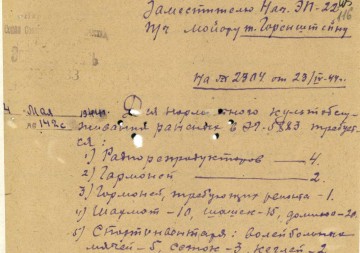 Заместителю Нач. ЭП-22
п/с майору т. Горенштейну
на № 2704 от 29/IV-44г.
4 Мая 1944г.
№ 142с
Для нормального культобслу-
живания раненых в ЭГ-5883 требует-
ся:
1) Радиорепродукторов — 4.
2) Гармоней — 2.
3) Гармоней, требующих ремонта - 1.
4) Шахмат - 10, шашек - 15, домино - 20.
5) Спортинвентаря: волейбольных
мячей - 5, сеток - 3, кеглей - 2